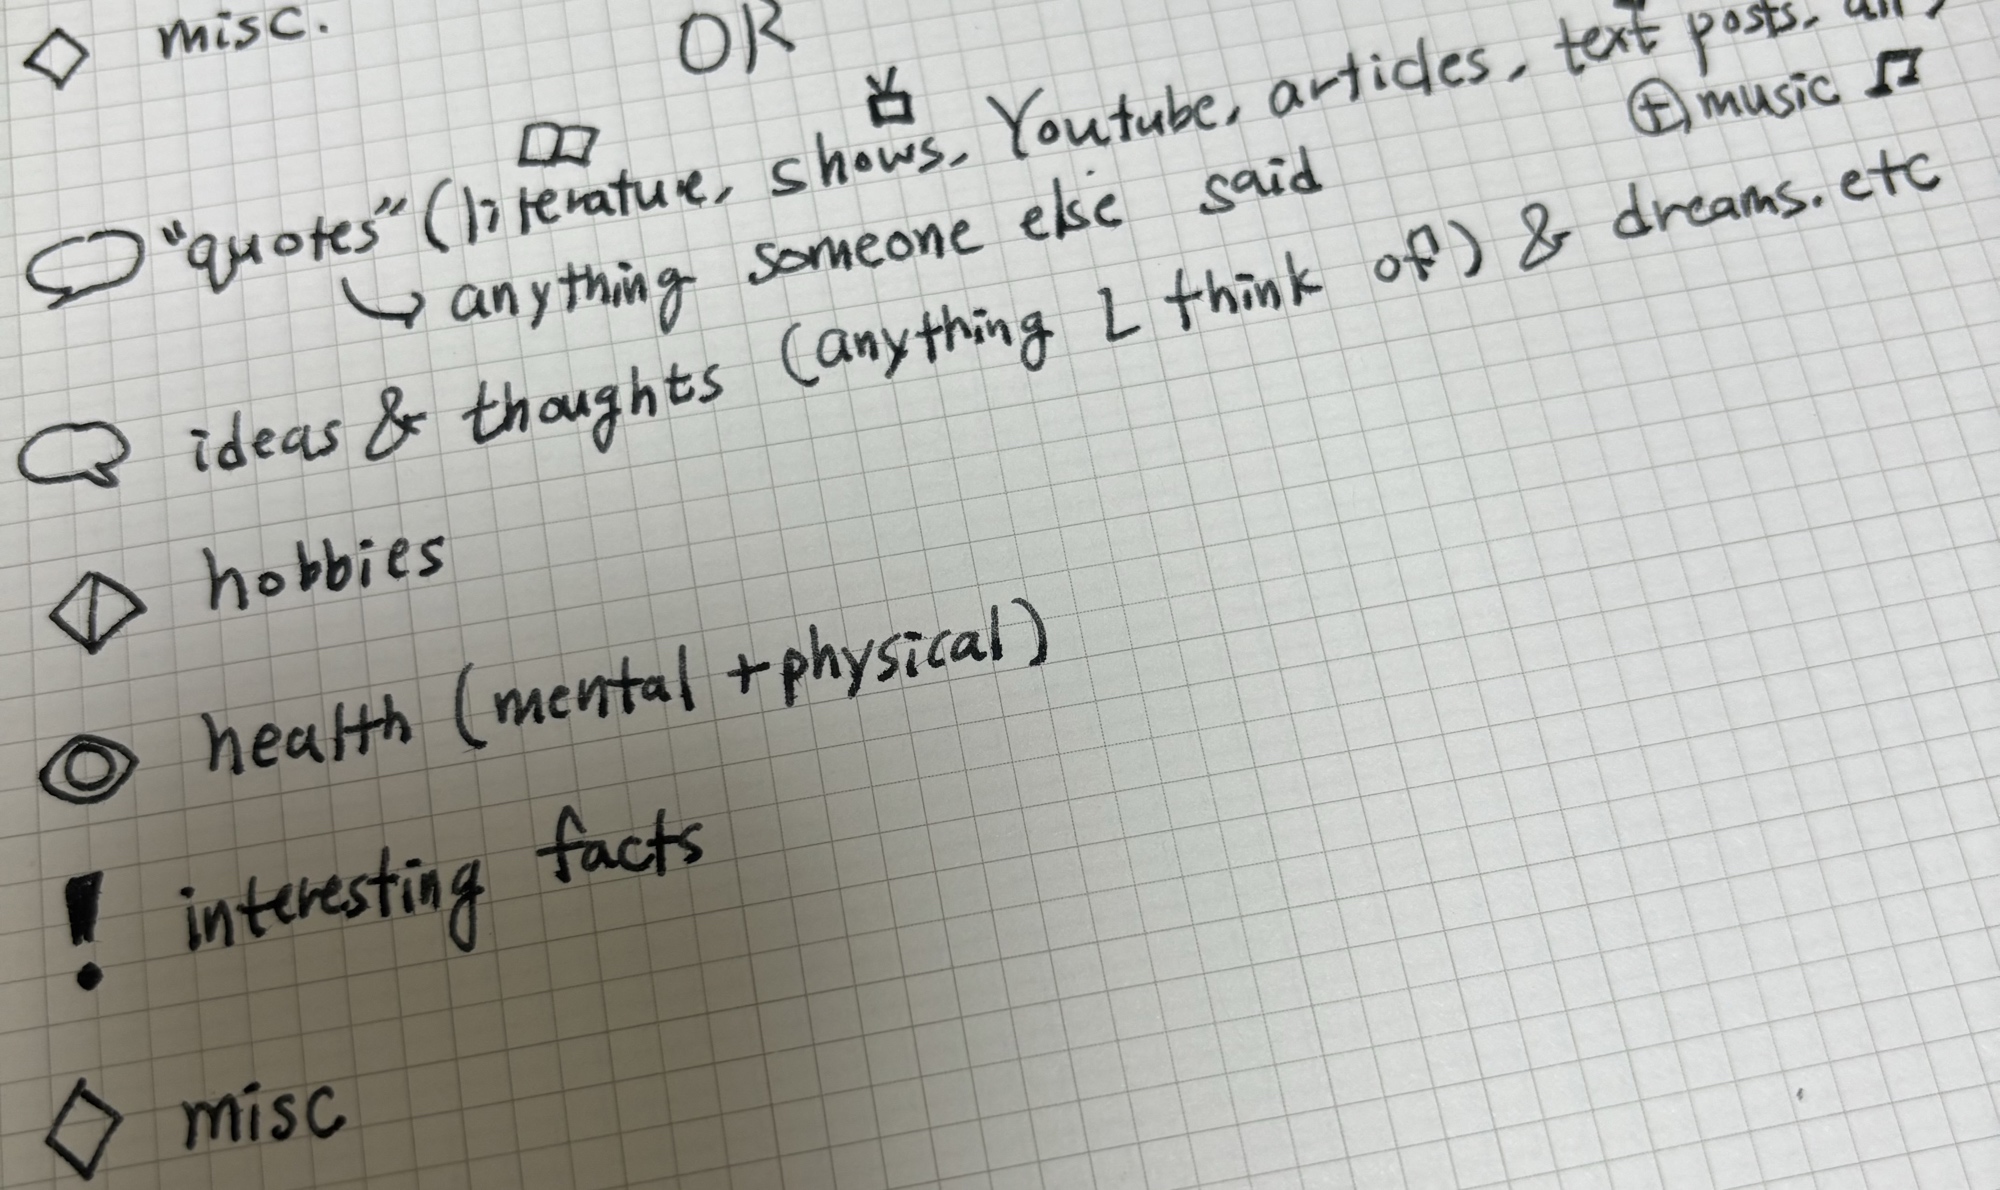 misc.
OR
"quotes" (literature, shows, Youtube, articles, text posts,
+ music
anything someone else said
ideas & thoughts (anything I think of) & dreams. etc
hobbies
health (mental + physical)
interesting facts
misc